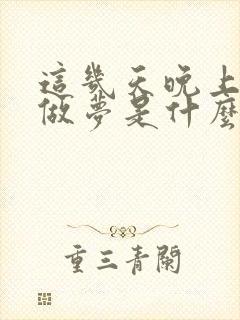 這幾天晚上
做夢是什麼
重三青闌